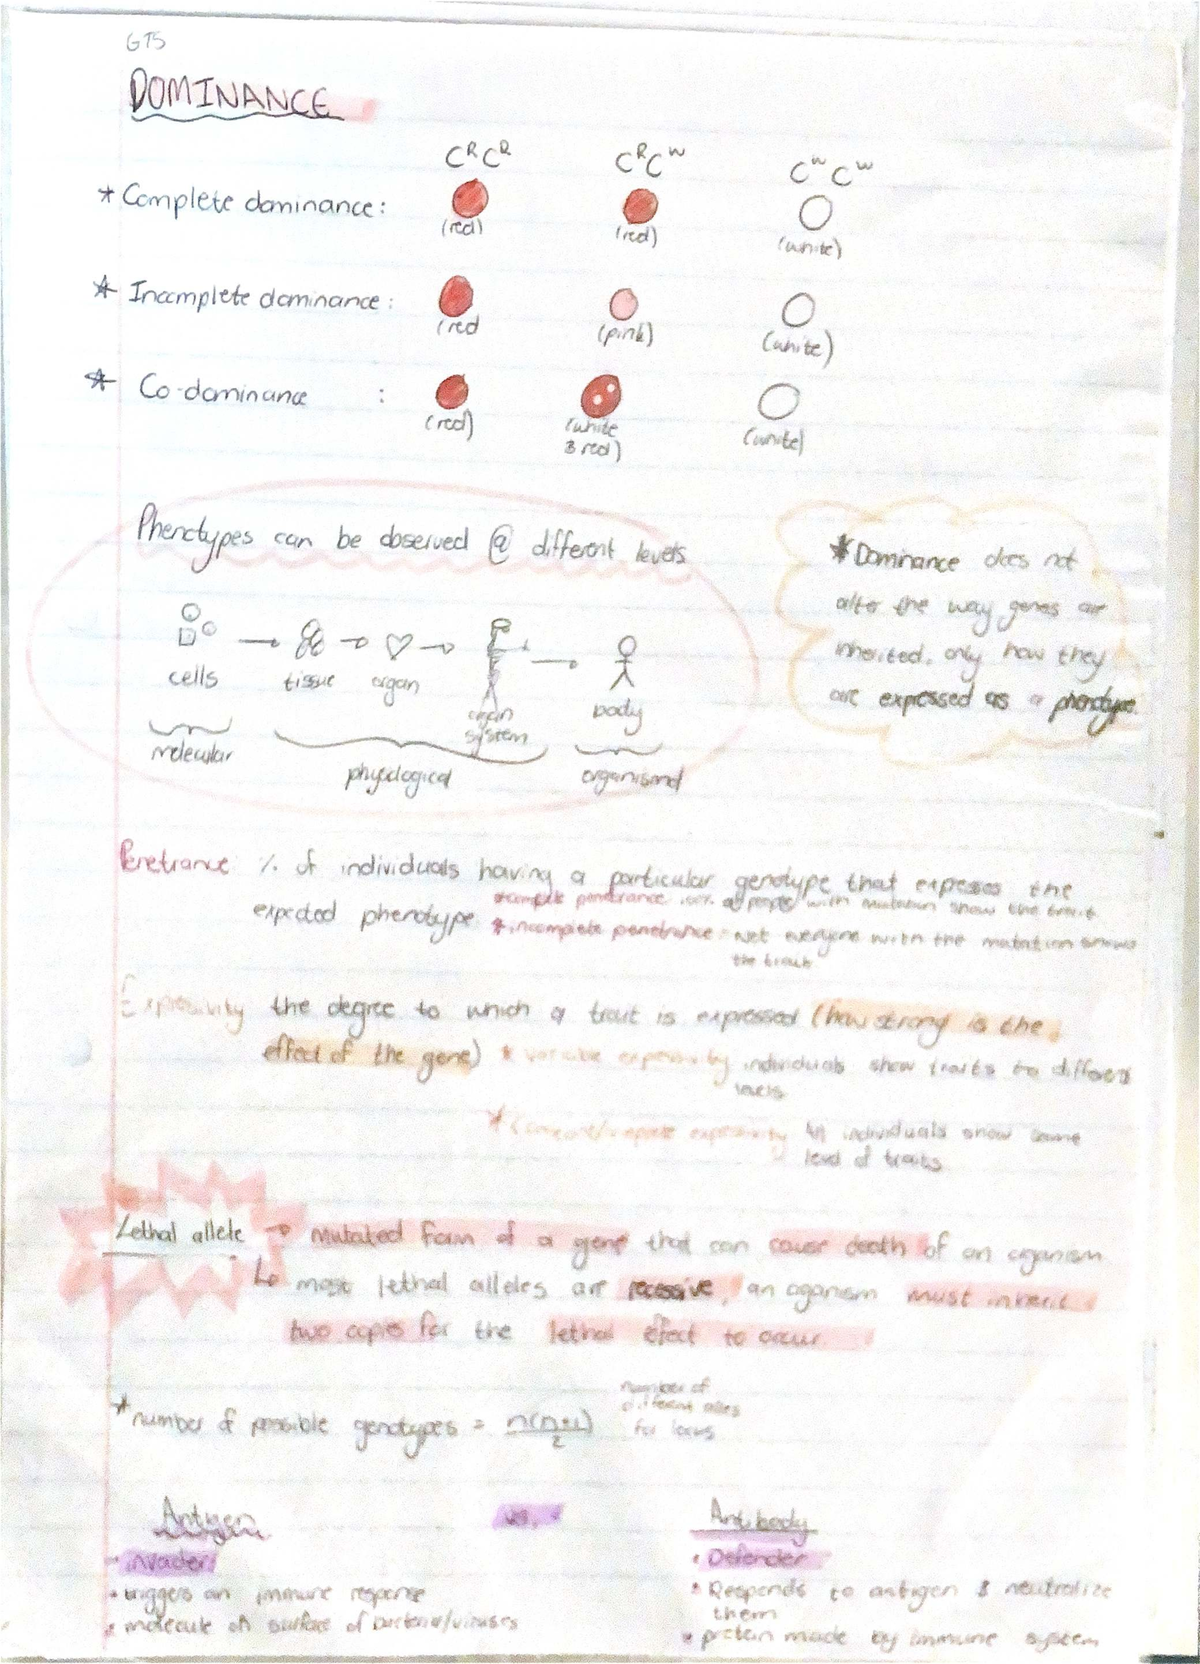 GTS
DOMINANCE
CᴿCᴿ CᴿCᵂ CᵂCᵂ
* Complete dominance: (red) (red) (white)
* Incomplete dominance: (red (pink) (white)
* Co-dominance : (red) (white & red) (white)
Phenotypes can be observed @ different levels
cells tissue organ organ system body
molecular physiological organismal
*Dominance does not
alter the way genes are
inherited, only how they
are expressed as a phenotype.
Penetrance: % of individuals having a particular genotype that expesses the
expected phenotype
*complete penetrance people with mutation show the trait
*incomplete penetrance: Not everyone with the mutation shows
the trait
Expressivity the degree to which a trait is expressed (how strong is the
effect of the gene) * variable expressivity individuals show traits to different
levels
* expressivity All individuals show same
level of traits
Lethal allele → mutated form of a gene that can cause death of an organism
↳ most lethal alleles are recessive, an organism must inherit
two copies for the lethal effect to occur
*number of possible genotypes = n(n+1)/2
number of
different alleles
for locus
Antigen vs. Antibody
• invader
• triggers an immune response
• molecule on surface of bacteria/viruses
• Defender
• Responds to antigen & neutralize
them
• protein made by immune system